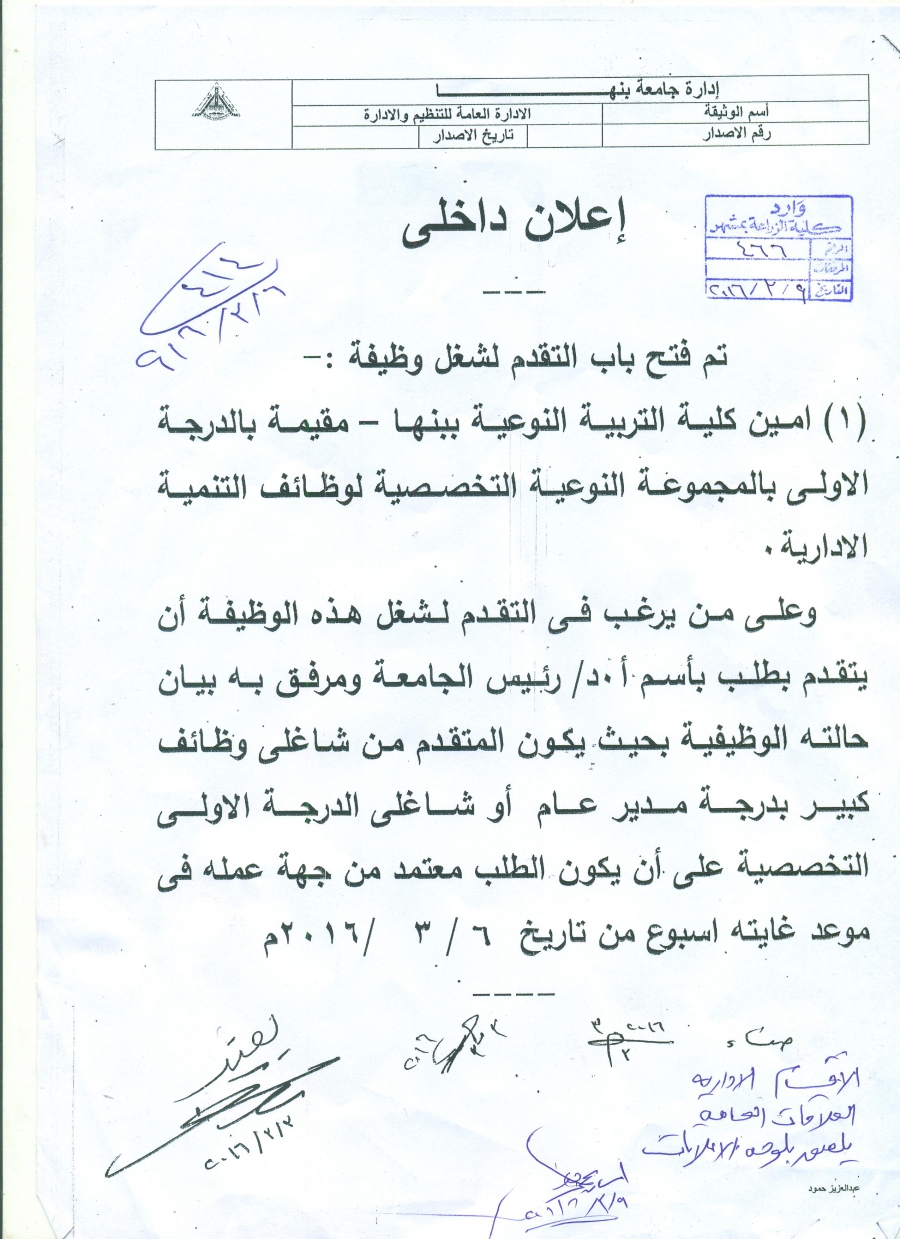 إدارة جامعة بنهـــــــــــــــا
أسم الوثيقة
الادارة العامة للتنظيم والادارة
رقم الاصدار
تاريخ الاصدار
إعلان داخلى
وارد
كلية الزراعة بمشتهر
الرقم ٤٦٦
المرفقات
التاريخ ٢٠١٦/٣/٩
٤١٤
تم فتح باب التقدم لشغل وظيفة :-
(١) امين كلية التربية النوعية ببنها – مقيمة بالدرجة
الاولى بالمجموعة النوعية التخصصية لوظائف التنمية
الادارية ٠
وعلى من يرغب فى التقدم لشغل هذه الوظيفة أن
يتقدم بطلب بأسم أ٠د/ رئيس الجامعة ومرفق به بيان
حالته الوظيفية بحيث يكون المتقدم من شاغلى وظائف
كبير بدرجة مدير عام أو شاغلى الدرجة الاولى
التخصصية على أن يكون الطلب معتمد من جهة عمله فى
موعد غايته اسبوع من تاريخ ٦ / ٣ / ٢٠١٦م
يعتمد
٢٠١٦/٣/٣
الأقسام الادارية
العلاقات العامة
بلوحة الاعلانات
عبدالعزيز حمود